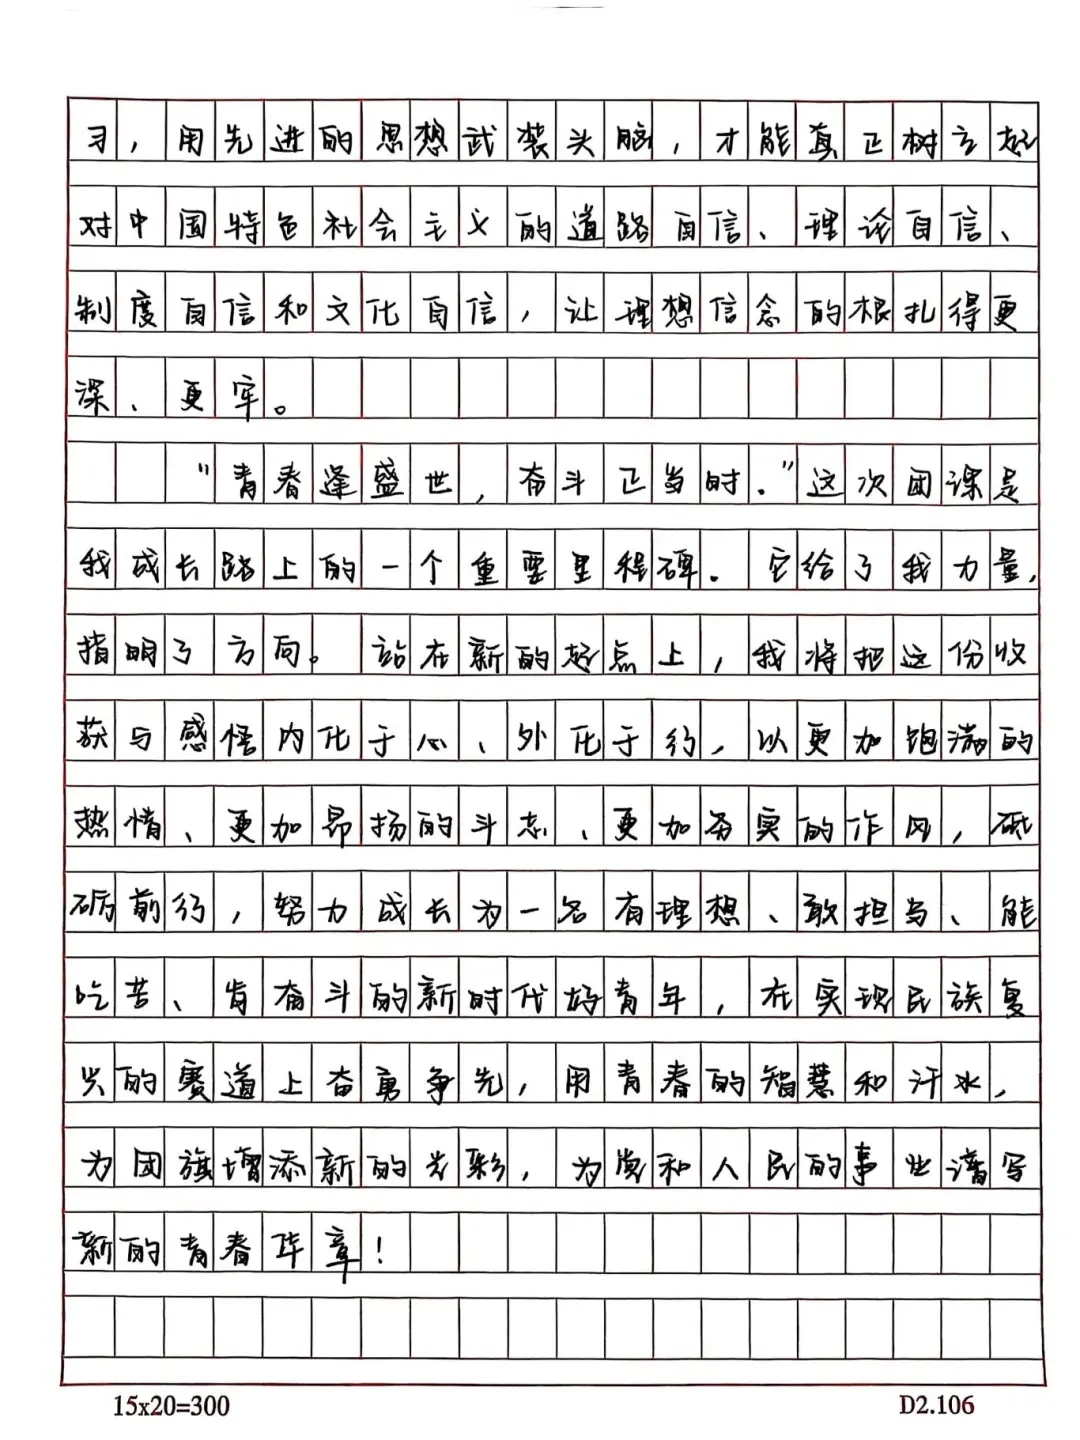 习，用先进的思想武装头脑，才能真正树立起
对中国特色社会主义的道路自信、理论自信、
制度自信和文化自信，让理想信念的根扎得更
深、更牢。
“青春逢盛世，奋斗正当时.”这次团课是
我成长路上的一个重要里程碑。它给了我力量，
指明了方向。站在新的起点上，我将把这份收
获与感悟内化于心、外化于行，以更加饱满的
热情、更加昂扬的斗志、更加务实的作风，砥
砺前行，努力成长为一名有理想、敢担当、能
吃苦、肯奋斗的新时代好青年，在实现民族复
兴的赛道上奋勇争先，用青春的智慧和汗水，
为团旗增添新的光彩，为党和人民的事业谱写
新的青春华章！
15x20=300
D2.106